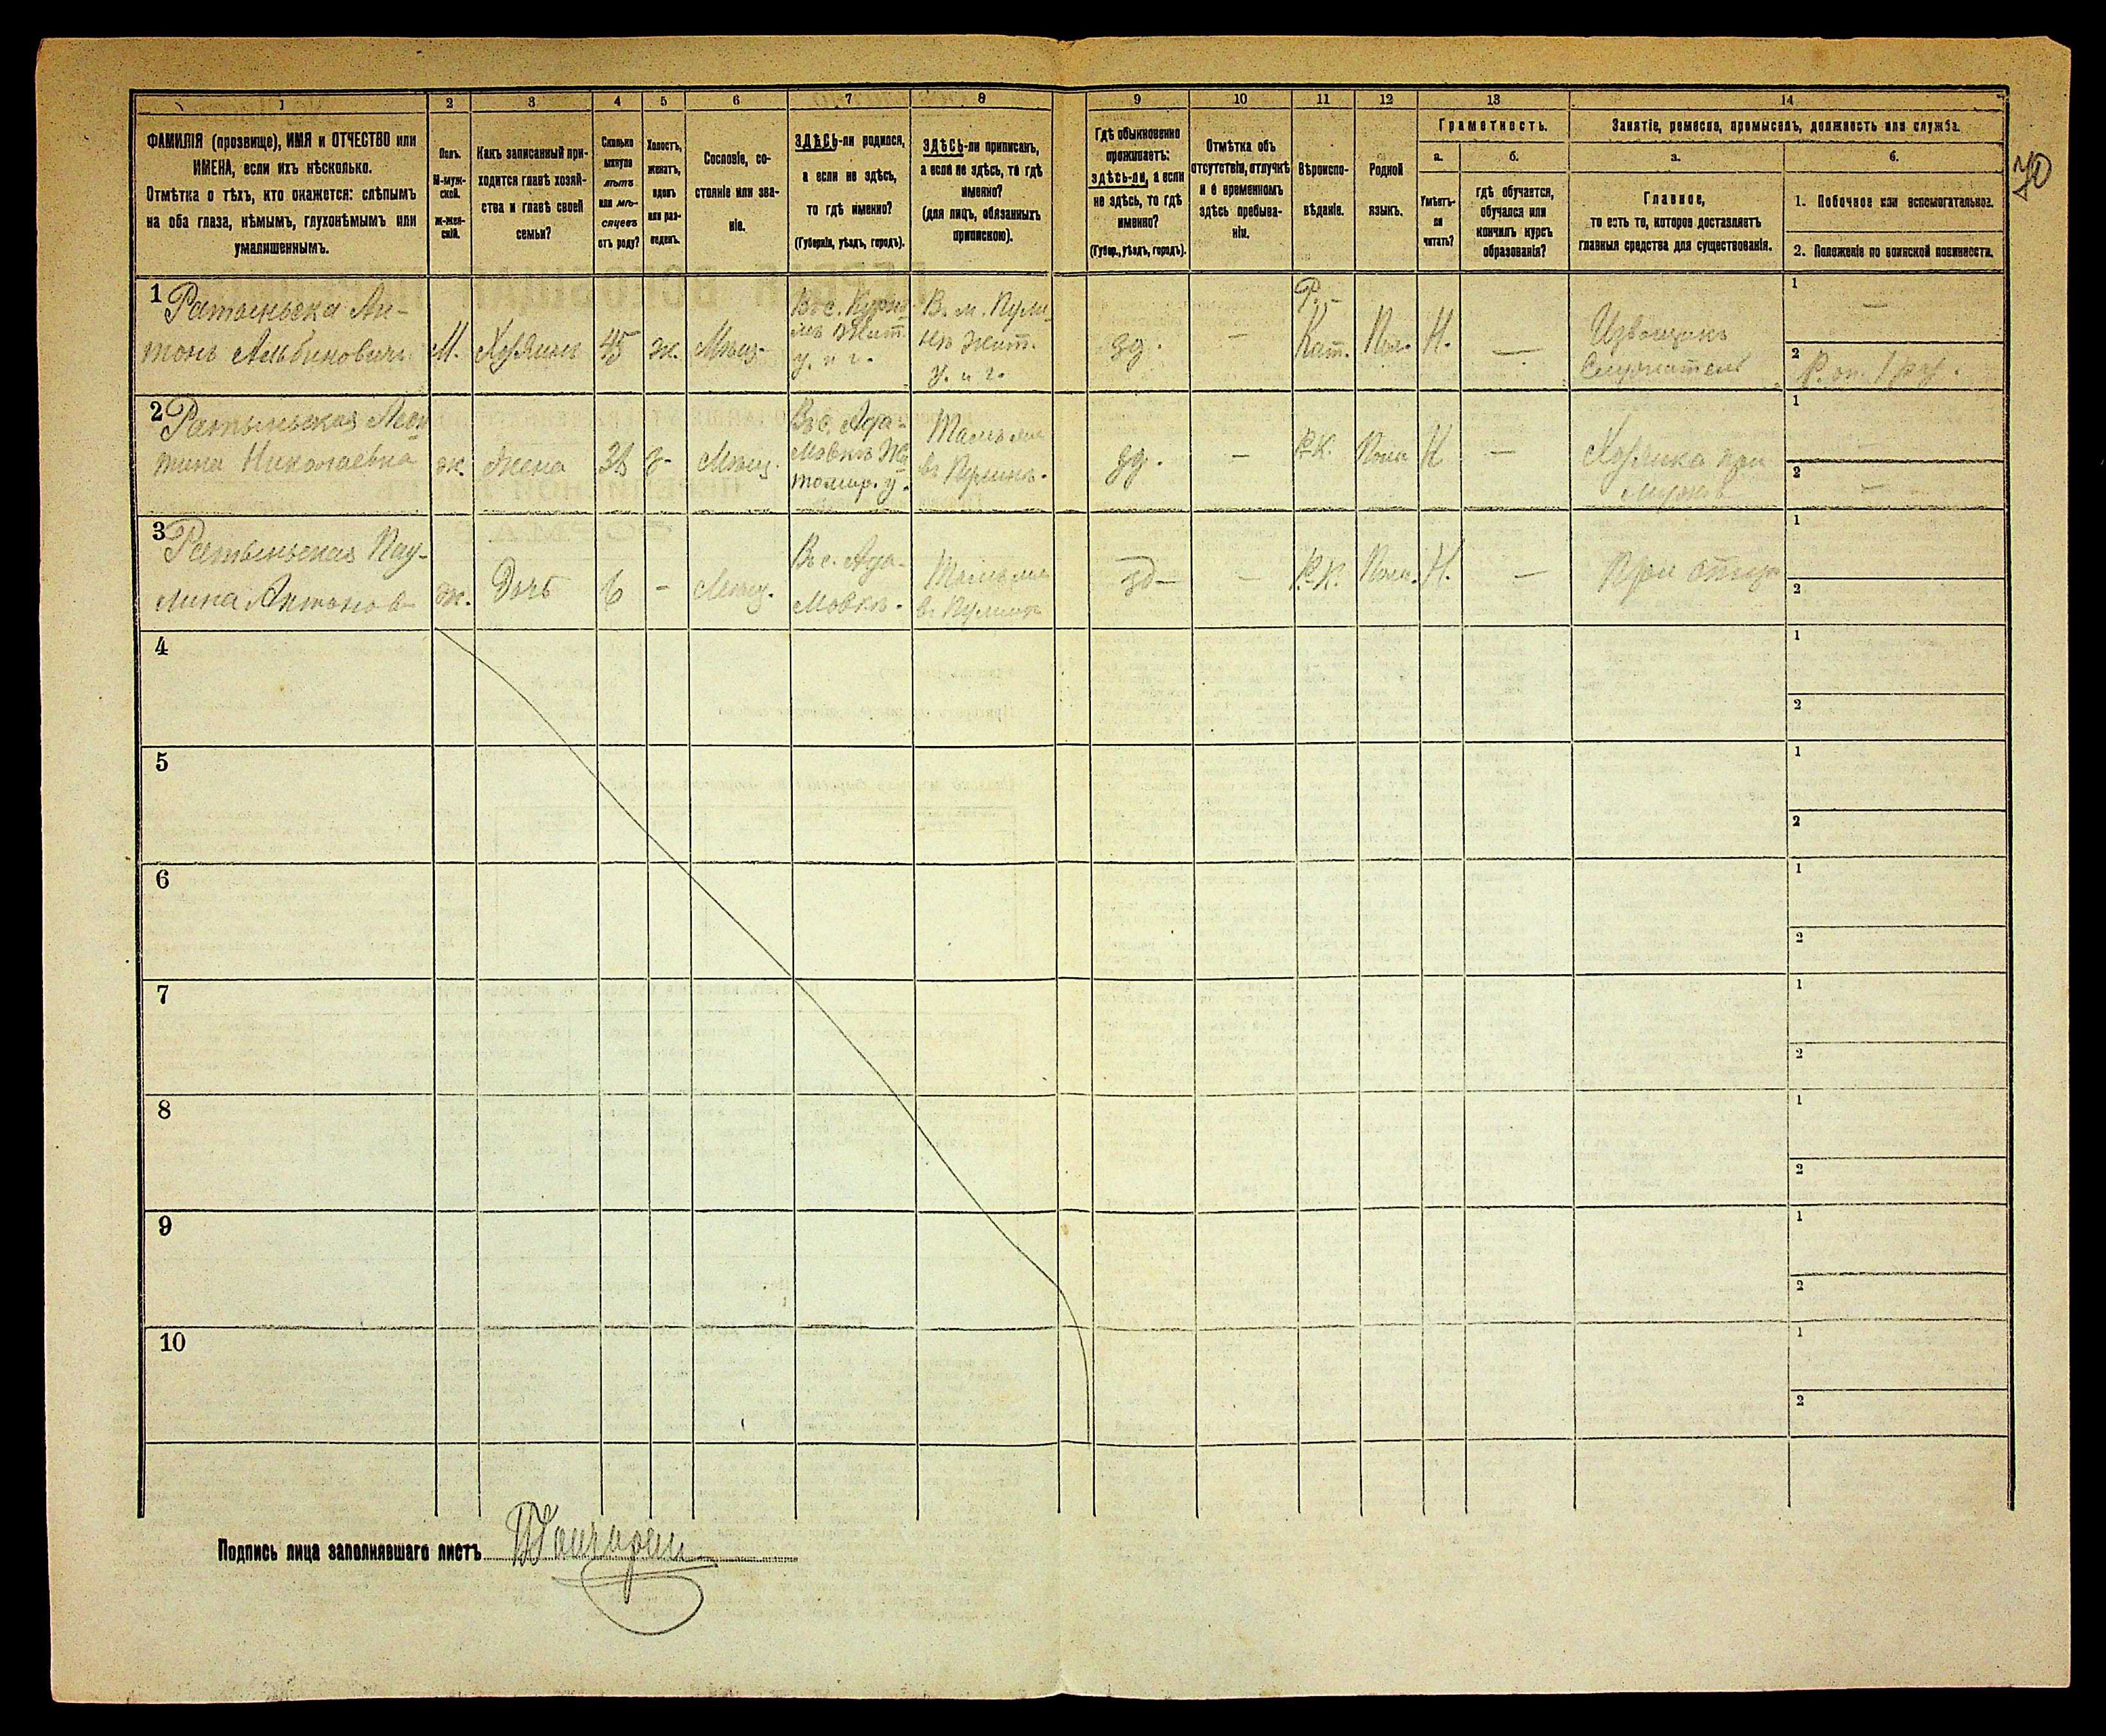 1 2 3 4 5 6 7 8 9 10 11 12 13 14
ФАМИЛІЯ (прозвище), ИМЯ и ОТЧЕСТВО или
ИМЕНА, если ихъ нѣсколько.
Отмѣтка о тѣхъ, кто окажется: слѣпымъ
на оба глаза, нѣмымъ, глухонѣмымъ или
умалишеннымъ.
Полъ.
М-муж-
ской.
Ж-жен-
скій.
Какъ записанный при-
ходится главѣ хозяй-
ства и главѣ своей
семьи?
Сколько
минуло
лѣтъ
или мѣ-
сяцевъ
отъ роду?
Холостъ,
женатъ,
вдовъ
или раз-
веденъ.
Сословіе, со-
стояніе или зва-
ніе.
ЗДѢСЬ-ли родился,
а если не здѣсь,
то гдѣ именно?
(Губернія, уѣздъ, городъ).
ЗДѢСЬ-ли приписанъ,
а если не здѣсь, то гдѣ
именно?
(для лицъ, обязанныхъ
припискою).
Гдѣ обыкновенно
проживаетъ:
здѣсь-ли, а если
не здѣсь, то гдѣ
именно?
(Губер., уѣздъ, городъ).
Отмѣтка объ
отсутствіи, отлучкѣ
и о временномъ
здѣсь пребыва-
ніи.
Вѣроиспо-
вѣданіе.
Родной
языкъ.
Грамотность.
а.
Умѣетъ-
ли
читать?
б.
гдѣ обучается,
обучался или
кончилъ курсъ
образованія?
Занятіе, ремесло, промыселъ, должность или служба.
а.
Главное,
то есть то, которое доставляетъ
главныя средства для существованія.
б.
1. Побочное или вспомогательное.
2. Положеніе по воинской повинности.
70
1
Ратыньска Ан-
тонъ Альбиновичъ
М.
Хозяинъ
45
ж.
Мѣщ.
Въ с.
Жит.
у. и г.
В. м. Пули-
нъ Жит.
у. и г.
зд.
—
Р.-
Кат.
Пол.
Н.
—
Извощикъ
1
—
2
2
Ратыньская
тина Николаевна
ж.
Жена
38
з-
Мѣщ.
Въ с. Ада-
мовкѣ Жи-
томир. у.
Тамъ же
въ Пулинѣ.
зд.
—
Р.К.
Поль
Н
—
Хозяйка при
мужѣ
1
—
2
—
3
Ратыньская Пау-
лина Антонов-
ж.
Дочь
6
-
Мѣщ.
Въ с. Ада-
мовкѣ.
Тамъ же
въ Пулинѣ
зд-
—
Р.К.
Поль.
Н.
—
При отцѣ
1
2
4
1
2
5
1
2
6
1
2
7
1
2
8
1
2
9
1
2
10
1
2
Подпись лица заполнявшаго листъ